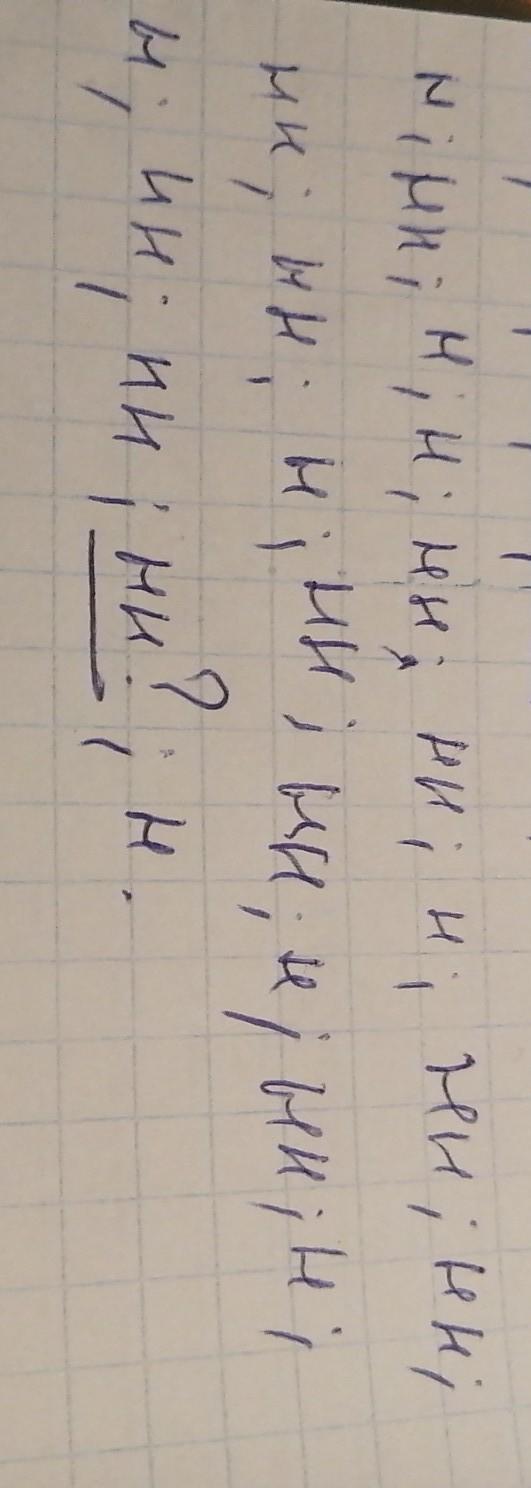 н; нн; н; н; нн; нн; н; нн; нн;
нн; нн; н; нн; нн; н; нн; н;
н; нн; нн; нн?; н.